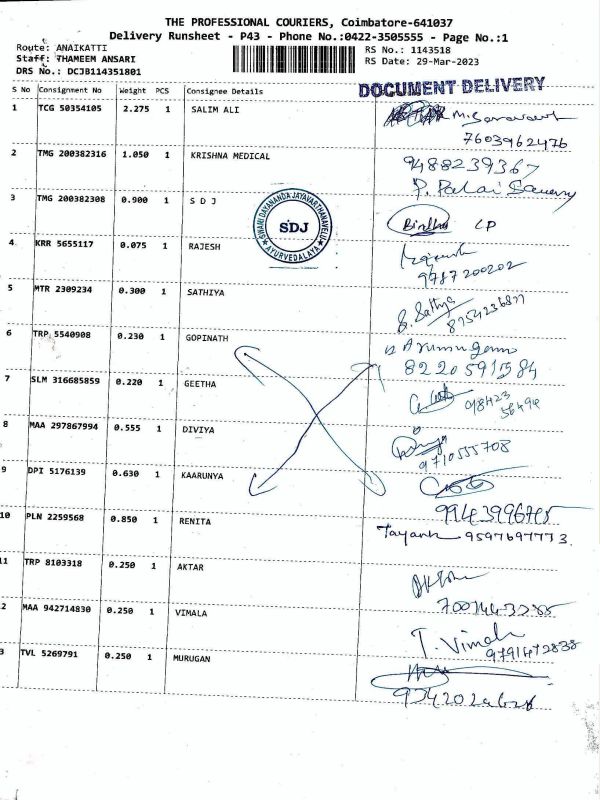 THE PROFESSIONAL COURIERS, Coimbatore-641037
Delivery Runsheet - P43 - Phone No.:0422-3505555 - Page No.:1
Route: ANAIKATTI RS No.: 1143518
Staff: THAMEEM ANSARI RS Date: 29-Mar-2023
DRS No.: DCJB114351801
DOCUMENT DELIVERY
S No Consignment No Weight PCS Consignee Details
1 TCG 50354105 2.275 1 SALIM ALI
7603962476
2 TMG 200382316 1.050 1 KRISHNA MEDICAL
9488239367
3 TMG 200382308 0.900 1 S D J
SWAMI DAYANANDA JAYAVARTHANAVELU AYURVEDALAYA
SDJ
4 KRR 5655117 0.075 1 RAJESH
9787200202
5 MTR 2309234 0.300 1 SATHIYA
S. Sathya
6 TRP 5540908 0.230 1 GOPINATH
Arumugam
8220591584
7 SLM 316685859 0.220 1 GEETHA
8 MAA 297867994 0.555 1 DIVIYA
9710555708
9 DPI 5176139 0.630 1 KAARUNYA
10 PLN 2259568 0.850 1 RENITA
9597697773
11 TRP 8103318 0.250 1 AKTAR
2 MAA 942714830 0.250 1 VIMALA
T. Vimala
9791472838
3 TVL 5269791 0.250 1 MURUGAN